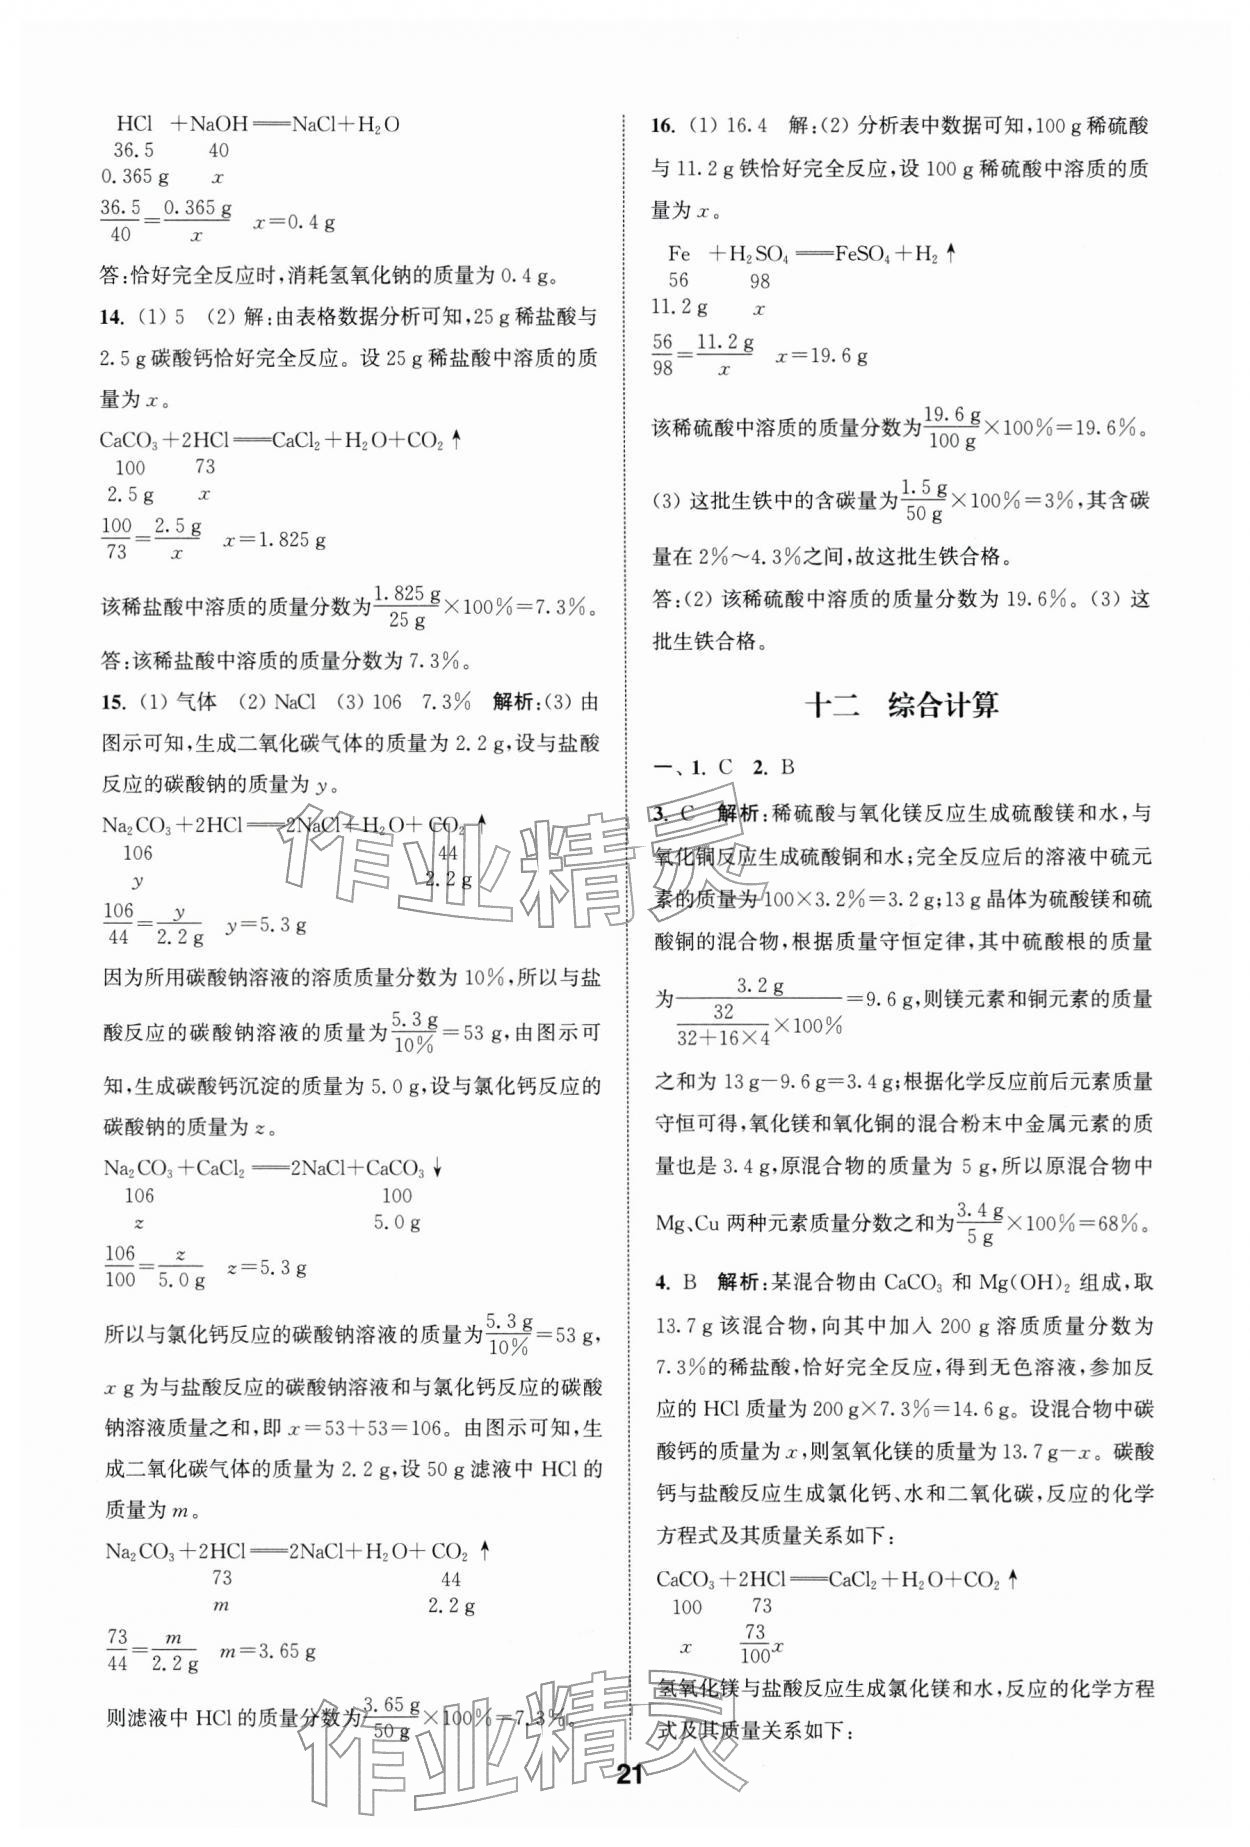 HCl +NaOH══NaCl+H₂O
36.5 40
0.365 g x
36.5/40=0.365 g/x x=0.4 g
答:恰好完全反应时,消耗氢氧化钠的质量为 0.4 g。
14. (1) 5 (2) 解:由表格数据分析可知,25 g稀盐酸与
2.5 g碳酸钙恰好完全反应。设 25 g稀盐酸中溶质的质
量为 x。
CaCO₃+2HCl══CaCl₂+H₂O+CO₂↑
100 73
2.5 g x
100/73=2.5 g/x x=1.825 g
该稀盐酸中溶质的质量分数为1.825 g/25 g×100%=7.3%。
答:该稀盐酸中溶质的质量分数为 7.3%。
15. (1) 气体 (2) NaCl (3) 106 7.3% 解析:(3) 由
图示可知,生成二氧化碳气体的质量为 2.2 g,设与盐酸
反应的碳酸钠的质量为 y。
Na₂CO₃+2HCl══2NaCl+H₂O+CO₂↑
106 44
y 2.2 g
106/44=y/2.2 g y=5.3 g
因为所用碳酸钠溶液的溶质质量分数为 10%,所以与盐
酸反应的碳酸钠溶液的质量为5.3 g/10%=53 g,由图示可
知,生成碳酸钙沉淀的质量为 5.0 g,设与氯化钙反应的
碳酸钠的质量为 z。
Na₂CO₃+CaCl₂══2NaCl+CaCO₃↓
106 100
z 5.0 g
106/100=z/5.0 g z=5.3 g
所以与氯化钙反应的碳酸钠溶液的质量为5.3 g/10%=53 g,
x g为与盐酸反应的碳酸钠溶液和与氯化钙反应的碳酸
钠溶液质量之和,即 x=53+53=106。由图示可知,生
成二氧化碳气体的质量为 2.2 g,设 50 g滤液中 HCl 的
质量为 m。
Na₂CO₃+2HCl══2NaCl+H₂O+CO₂↑
73 44
m 2.2 g
73/44=m/2.2 g m=3.65 g
则滤液中 HCl 的质量分数为3.65 g/50 g×100%=7.3%。
16. (1) 16.4 解:(2) 分析表中数据可知,100 g稀硫酸
与 11.2 g铁恰好完全反应,设 100 g稀硫酸中溶质的质
量为 x。
Fe +H₂SO₄══FeSO₄+H₂↑
56 98
11.2 g x
56/98=11.2 g/x x=19.6 g
该稀硫酸中溶质的质量分数为19.6 g/100 g×100%=19.6%。
(3) 这批生铁中的含碳量为1.5 g/50 g×100%=3%,其含碳
量在 2%~4.3%之间,故这批生铁合格。
答:(2) 该稀硫酸中溶质的质量分数为 19.6%。(3) 这
批生铁合格。
十二 综合计算
一、1. C 2. B
3. C 解析:稀硫酸与氧化镁反应生成硫酸镁和水,与
氧化铜反应生成硫酸铜和水;完全反应后的溶液中硫元
素的质量为 100×3.2%=3.2 g;13 g晶体为硫酸镁和硫
酸铜的混合物,根据质量守恒定律,其中硫酸根的质量
为3.2 g/(32/(32+16×4)×100%)=9.6 g,则镁元素和铜元素的质量
之和为 13 g-9.6 g=3.4 g;根据化学反应前后元素质量
守恒可得,氧化镁和氧化铜的混合粉末中金属元素的质
量也是 3.4 g,原混合物的质量为 5 g,所以原混合物中
Mg、Cu 两种元素质量分数之和为3.4 g/5 g×100%=68%。
4. B 解析:某混合物由 CaCO₃ 和 Mg(OH)₂ 组成,取
13.7 g该混合物,向其中加入 200 g 溶质质量分数为
7.3%的稀盐酸,恰好完全反应,得到无色溶液,参加反
应的 HCl 质量为 200 g×7.3%=14.6 g。设混合物中碳
酸钙的质量为 x,则氢氧化镁的质量为 13.7 g-x。碳酸
钙与盐酸反应生成氯化钙、水和二氧化碳,反应的化学
方程式及其质量关系如下:
CaCO₃+2HCl══CaCl₂+H₂O+CO₂↑
100 73
x 73/100x
氢氧化镁与盐酸反应生成氯化镁和水,反应的化学方程
式及其质量关系如下:
21
作业精灵
作业精灵